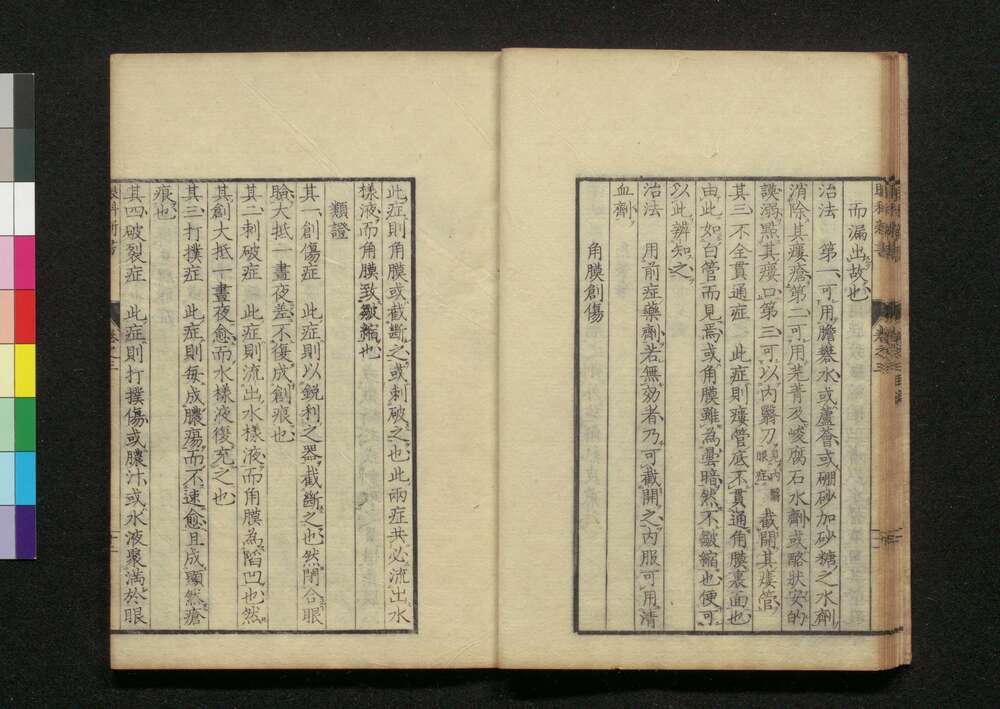 而漏出故也
治法　第一、可用膽礬水、或蘆薈、或硼砂加砂糖之水劑、
消除其瘻瘡、第二、可用芫菁及峻腐石水劑、或酪狀安的
謨溺點其瘻口、第三、可以內翳刀見內翳眼症截開其瘻管、
其三不全貫通症　此症則瘻管底不貫通角膜裏面也
由此、如白管而見焉、或角膜雖為曇暗、然不皺縮也、便可
以此辨知之、
治法　用前症藥劑、若無効者、乃可截開之、內服可用清
血劑、
角膜創傷
此症則角膜或截斷之、或刺破之也、此兩症共必流出水
樣液、而角膜致皺縮也
類證
其一創傷症　此症則以銳利之器截斷之也、然閉合眼
瞼、大抵一晝夜差、不復成創痕也
其二刺破症　此症則流出水樣液、而角膜為陷凹也、然
其創大抵一晝夜愈、而水樣液復充之也
其三打撲症　此症則每成膿瘍、而不速愈、且成顯然瘡
痕也、
其四破裂症　此症則打撲傷、或膿汁、或水液聚滿於眼
卷之三